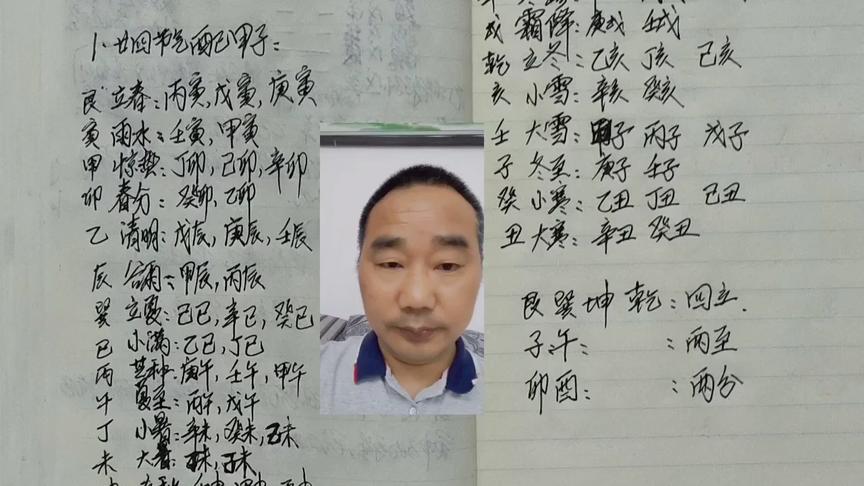 1.廿四节气配甲子：
艮 立春：丙寅，戊寅，庚寅
寅 雨水：壬寅，甲寅
甲 惊蛰：丁卯，己卯，辛卯
卯 春分：癸卯，乙卯
乙 清明：戊辰，庚辰，壬辰
辰 谷雨：甲辰，丙辰
巽 立夏：己巳，辛巳，癸巳
巳 小满：乙巳，丁巳
丙 芒种：庚午，壬午，甲午
午 夏至：丙午，戊午
丁 小暑：辛未，癸未，乙未
未 大暑：未，未
戌 霜降：庚戌 壬戌
乾 立冬：乙亥 丁亥 己亥
亥 小雪：辛亥 癸亥
壬 大雪：甲子 丙子 戊子
子 冬至：庚子 壬子
癸 小寒：乙丑 丁丑 己丑
丑 大寒：辛丑 癸丑
艮巽坤乾：四立.
子午：：两至
卯酉：：两分